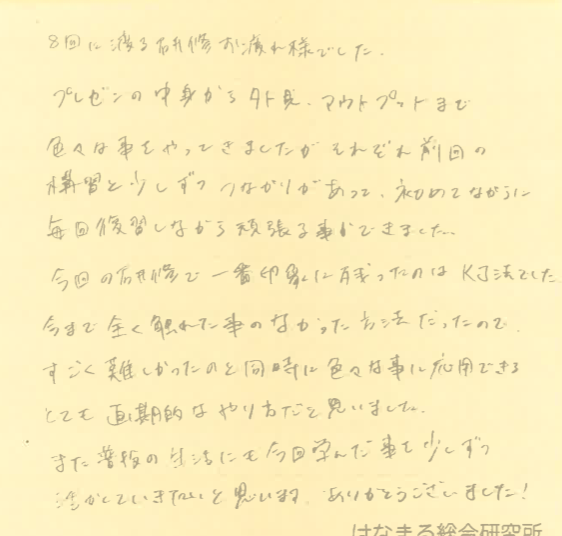 8回に渡る研修お疲れ様でした.
プレゼンの中身から外見、アウトプットまで
色々な事をやってきましたがそれぞれ前回の
講習と少しずつつながりがあって、初めてながらに
毎回復習しながら頑張る事ができました。
今回の研修で一番印象に残ったのはKJ法でした
今まで全く触れた事のなかった方法だったので、
すごく難しかったのと同時に色々な事に応用できる
とても画期的なやり方だと思いました。
また普段の生活にも今回学んだ事を少しずつ
活かしていきたいと思います ありがとうございました!
はなまる総合研究所